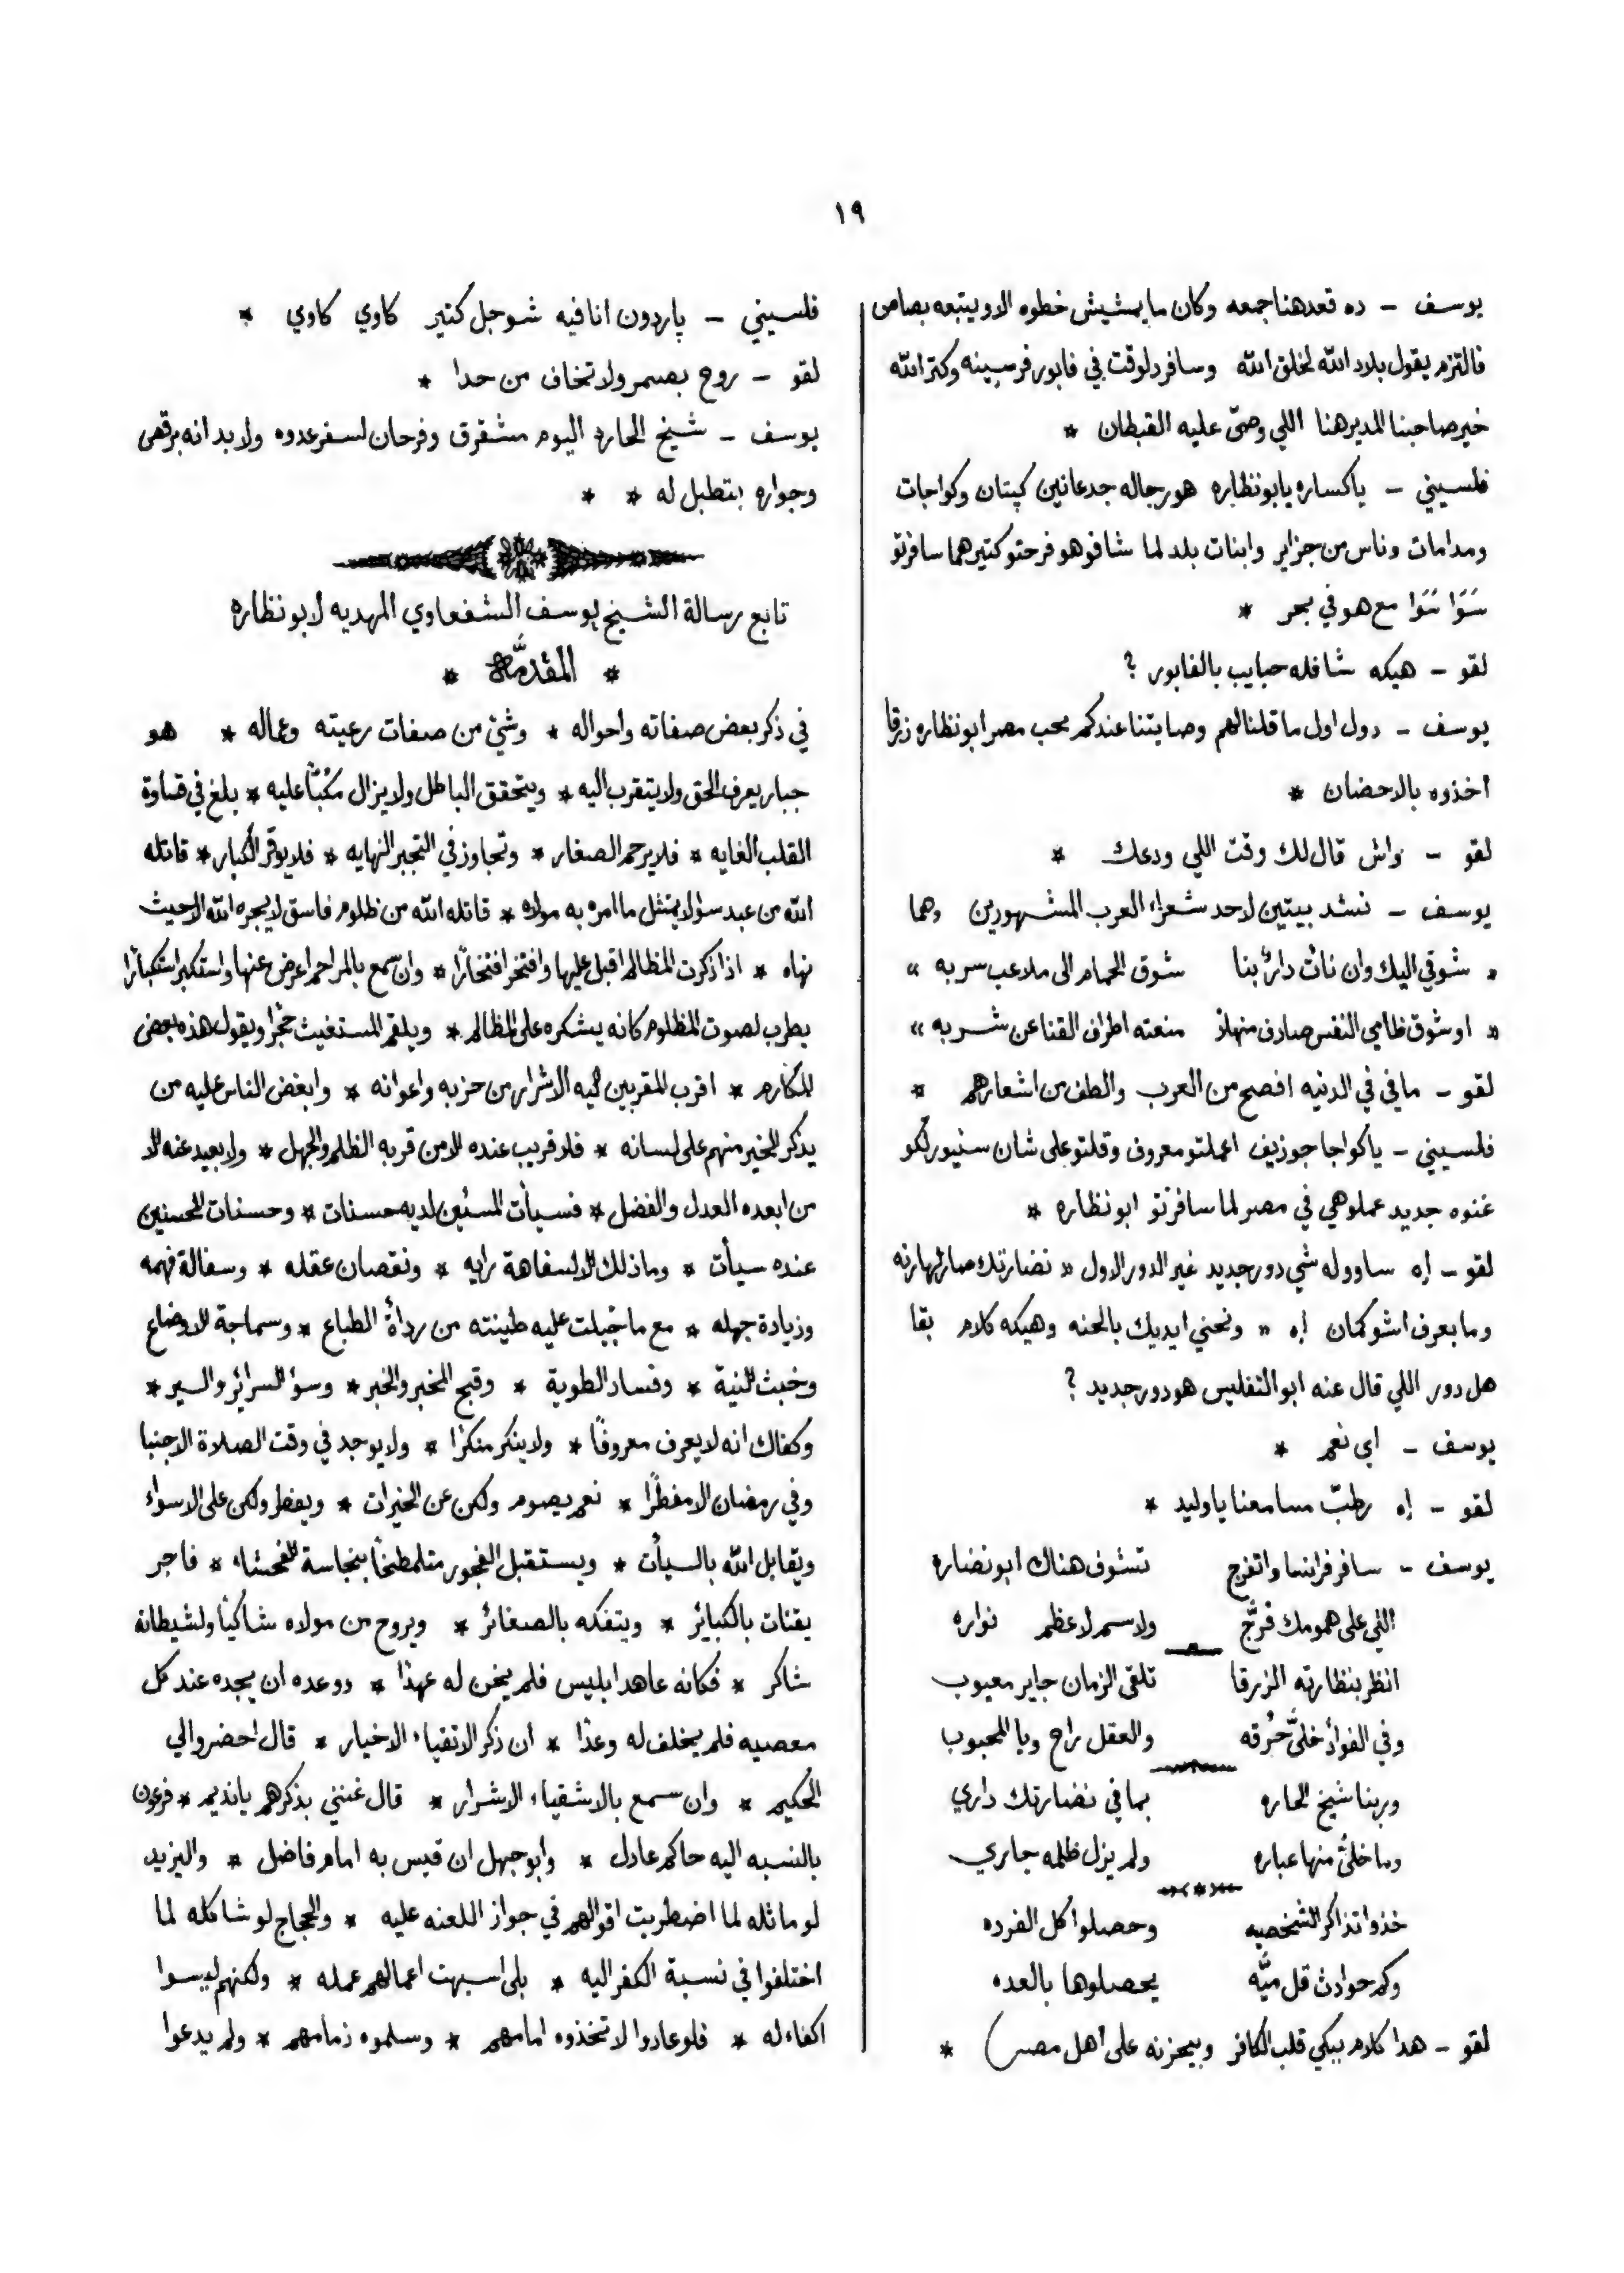 ١٩
يوسف – ده قعد هنا جمعه وكان ما يمشيش خطوه الا ويتبعه بصاص
فالتزم يقول بلاد الله لخلق الله وسافر دلوقت في فابور فرسينه وكتر الله
خير صاحبنا المدير هنا اللي وصّى عليه القبطان *
فلسيني – ياكساره يابونظاره هو رجاله جدعانين كپتان وكواجات
ومدامات وناس من جزاير وابنات بلد لما شافو هو فرحتو كتير هما سافرتو
سَوَا سَوَا مع هو في بحر *
لقو – هيكه شافله حبايب بالفابور ?
يوسف – دول اول ما قلنا لهم وصايتنا عندكم محب مصر ابونظاره زرقا
اخذوه بالاحضان *
لقو – واش قال لك وقت اللي ودعك *
يوسف – نشد بيتين لاحد شعراء العرب المشهورين وهما
« شوقي اليك وان نأت دارٌ بنا شوق الحمام الى ملاعب سربه »
« او شوق ظامي النفس صادف منهلاً منعته اطراف القنا عن شربه »
لقو – مافي في الدنيه افصح من العرب والطف من اشعارهم *
فلسيني – ياكواجا جوزيف اعملتو معروف وقلتو على شان سنيور لكو
غنوه جديد عملوهي في مصر لما سافرتو ابونظاره *
لقو – اه ساووله شي دور جديد غير الدور الاول « نضارتك صار لها رنه
وما بعرف اشو كمان اه « ونحني ايديك بالحنه وهيكه كلام بقا
هل دور اللي قال عنه ابو التفليس هو دور جديد ?
يوسف – اي نعم *
لقو – اه رطبّ مسامعنا ياوليد *
يوسف – سافر فرانسا واتفرج تشوف هناك ابو نضارة
اللي على همومك فرَّج ولاسم لاعظم نواره
انظر بنظارته الزرقا تلقى الزمان جاير معيوب
وفي الفواد خلىّ حُرقه والعقل راح ويا المحبوب
وربنا شيخ الحاره بما في نضارتك داري
وما خلىّ منها عباره ولم يزل ظلمه جاري
خذوا تذاكر الشخصيه وحصلوا كل الفرده
وكم حوادث قل ميَّه يحصلوها بالعده
لقو – هدا كلام يبكي قلب الكافر وبيحزنه على أهل مصر ) *
فلسيني – پاردون انا فيه شوجل كتير كاوي كاوي *
لقو – روح بصمر ولا تخاف من حدا *
يوسف – شيخ الحارة اليوم مشقرق وفرحان لسفر عدوه ولا بد انه يرقص
وجواره بتطبل له * *
تابع رسالة الشيخ يوسف الشفعاوي المهديه لابونظاره
* المقدمَّة *
في ذكر بعض صفاته واحواله * وشئ من صفات رعيته وعماله * هو
جبار يعرف الحق ولا يتقرب اليه * ويتحقق الباطل ولا يزال مكبًّا عليه * بلغ في قساوة
القلب الغايه * فلا يرحم الصغار * وتجاوز في التجبر النهايه * فلا يوقر الكبار * قاتله
الله من عبد سوٍ لا يمتثل ما امره به مولاه * قاتله الله من ظلوم فاسق لا يجره الله الا حيث
نهاه * اذا ذكرت المظالم اقبل عليها وافتخر افتخارًا * وان سمع بالمراحم اعرض عنها واستكبر استكبارًا
يطرب لصوت المظلوم كانه يشكره على المظالم * ويلقم المستغيث حجرًا ويقول هذه بعض
المكارم * اقرب المقربين اليه الاشرار من حزبه واعوانه * وابغض الناس عليه من
يذكر الخير منهم على لسانه * فلا قريب عنده الا من قربه الظلم والجهل * ولا بعيد عنه الا
من ابعده العدل والفضل * فسيأت المسئين لديه حسنات * وحسنات المحسنين
عنده سيأت * وما ذلك الا لسفاهة رايه * ونقصان عقله * وسفالة فهمه
وزيادة جهله * مع ما جُبلت عليه طينته من رداءة الطباع * وسماجة الاوضاع
وخبث النية * وفساد الطوية * وقبح المخبر والخبر * وسوٌ السرائر والسير *
وكفاك انه لا يعرف معروفًا * ولا ينكر منكرًا * ولا يوجد في وقت الصلاة الا جنبا
وفي رمضان الا مفطرًا * نعم يصوم ولكن عن الخيرات * ويفطر ولكن على الاسواء
ويقابل الله بالسيأت * ويستقبل الفجور متلطخًا بنجاسة الفحشاء * فاجر
يقتات بالكبائر * ويتفكه بالصغائر * ويروح من مولاه شاكيًا ولشيطانه
شاكر * فكانه عاهد ابليس فلم يخن له عهدًا * ووعده ان يجده عند كل
معصيه فلم يخلف له وعدًا * ان ذكر الاتقياء الاخيار * قال احضروا لي
الحكيم * وان سمع بالاشقياء الاشرار * قال غنني بذكرهم يا نديم * فرعون
بالنسبه اليه حاكم عادل * وابو جهل ان قيس به امام فاضل * واليزيد
لو ماثله لما اضطربت اقوالهم في جواز اللعنه عليه * والحجاج لو شاكله لما
اختلفوا في نسبة الكفر اليه * بلى اسبهت اعمالهم عمله * ولكنهم ليسوا
اكفاء له * فلو عادوا لاتخذوه امامهم * وسلموه زمامهم * ولم يدعوا